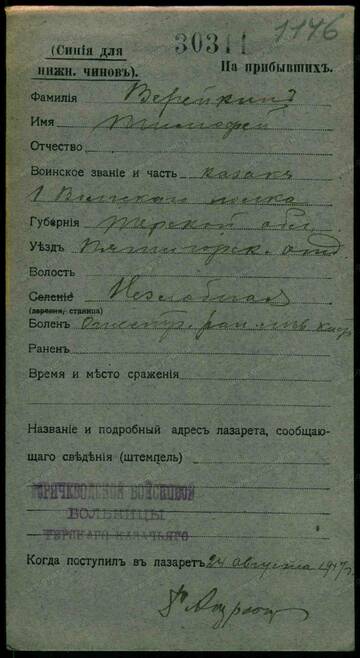 1146
30311
(Синія для
нижн. чиновъ).
На прибывшихъ.
Фамилія Верейкинъ
Имя Тимофей
Отчество
Воинское званіе и часть казакъ
1 Волгскаго полка
Губернія Терской обл
Уѣздъ Пятигорск. отд
Волость
Селеніе Незлобная
(деревня, станица)
Боленъ Огнестр. ран. лѣв.
Раненъ
Время и мѣсто сраженія
Названіе и подробный адресъ лазарета, сообщаю-
щаго свѣдѣнія (штемпель)
ГОРЯЧЕВОДСКОЙ ВОЙСКОВОЙ
БОЛЬНИЦЫ
ТЕРСКАГО КАЗАЧЬЯГО
Когда поступилъ въ лазаретъ 24 августа 1917 г.